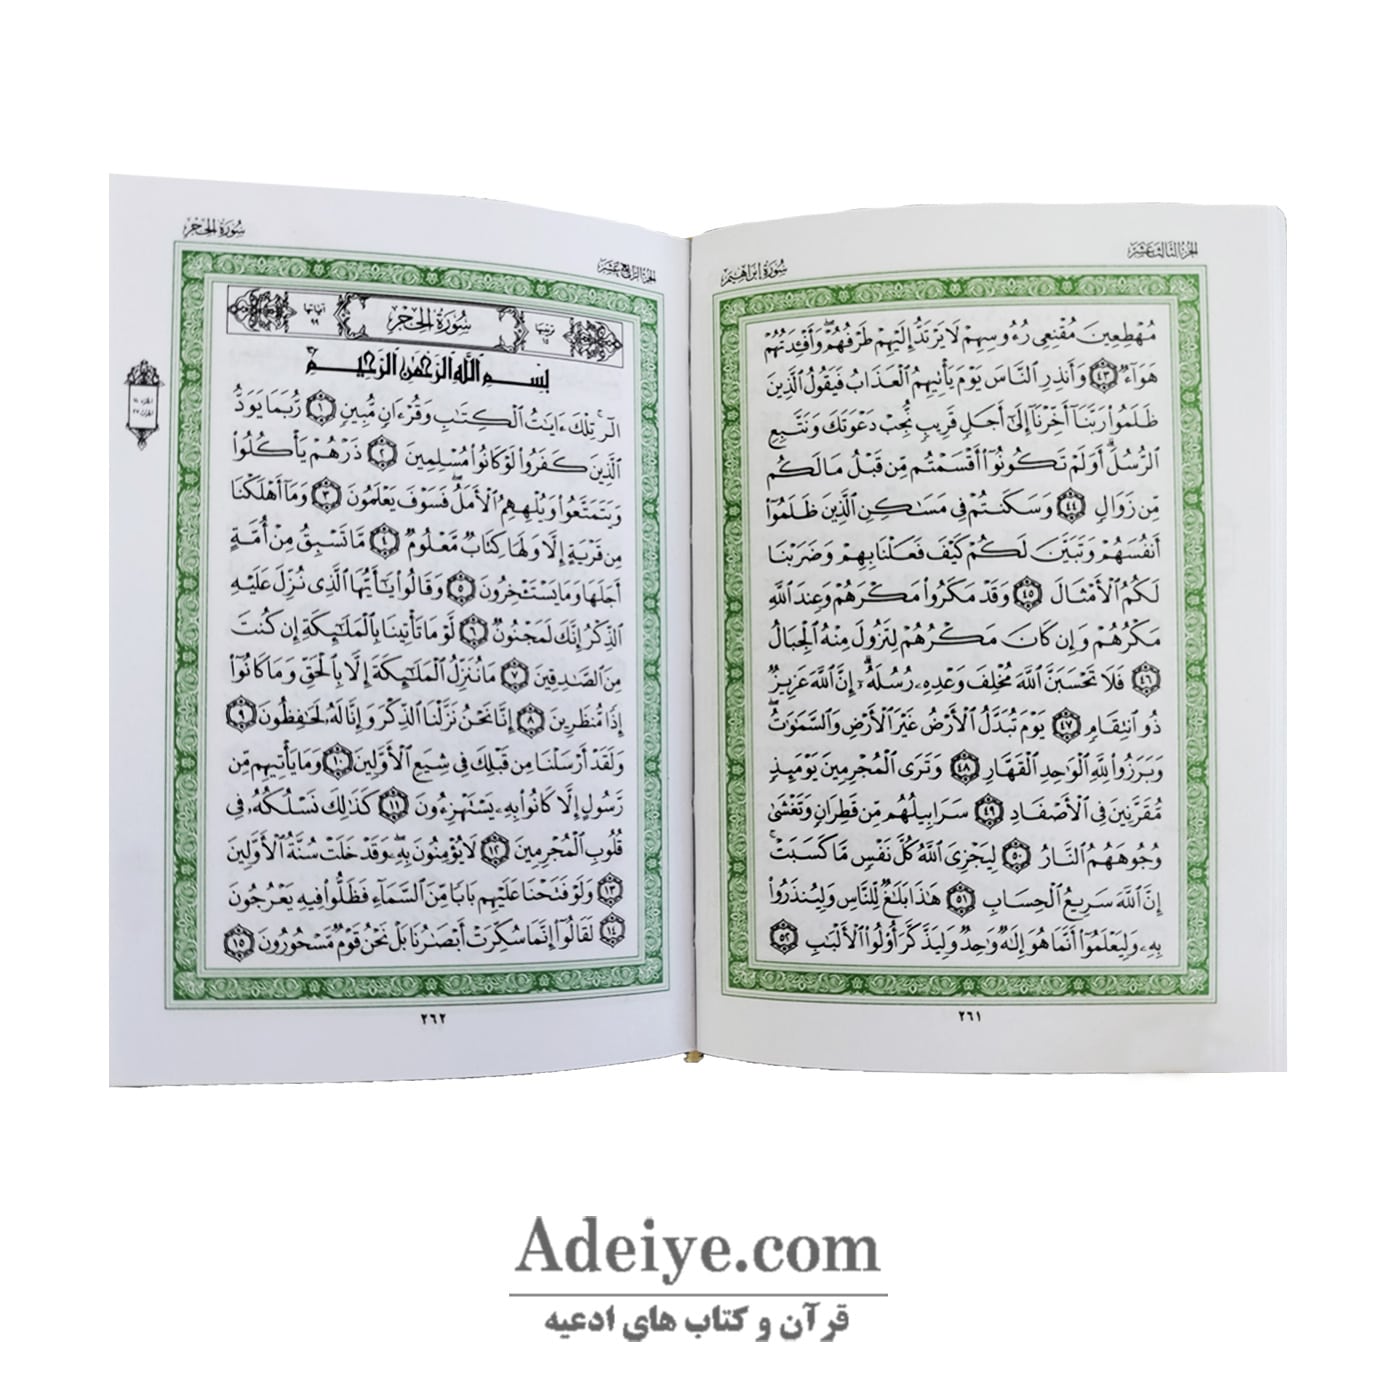 الجزء الثالث عشر
سورة ابراهيم
مُهْطِعِينَ مُقْنِعِي رُءُوسِهِمْ لَا يَرْتَدُّ إِلَيْهِمْ طَرْفُهُمْ ۖ وَأَفْـِٔدَتُهُمْ
هَوَآءٌ ٤٣ وَأَنذِرِ ٱلنَّاسَ يَوْمَ يَأْتِيهِمُ ٱلْعَذَابُ فَيَقُولُ ٱلَّذِينَ
ظَلَمُوا۟ رَبَّنَآ أَخِّرْنَآ إِلَىٰٓ أَجَلٍ قَرِيبٍ نُّجِبْ دَعْوَتَكَ وَنَتَّبِعِ
ٱلرُّسُلَ ۗ أَوَلَمْ تَكُونُوٓا۟ أَقْسَمْتُم مِّن قَبْلُ مَا لَكُم
مِّن زَوَالٍ ٤٤ وَسَكَنتُمْ فِي مَسَـٰكِنِ ٱلَّذِينَ ظَلَمُوٓا۟
أَنفُسَهُمْ وَتَبَيَّنَ لَكُمْ كَيْفَ فَعَلْنَا بِهِمْ وَضَرَبْنَا
لَكُمُ ٱلْأَمْثَالَ ٤٥ وَقَدْ مَكَرُوا۟ مَكْرَهُمْ وَعِندَ ٱللَّهِ
مَكْرُهُمْ وَإِن كَانَ مَكْرُهُمْ لِتَزُولَ مِنْهُ ٱلْجِبَالُ
٤٦ فَلَا تَحْسَبَنَّ ٱللَّهَ مُخْلِفَ وَعْدِهِۦ رُسُلَهُۥٓ ۗ إِنَّ ٱللَّهَ عَزِيزٌ
ذُو ٱنتِقَامٍ ٤٧ يَوْمَ تُبَدَّلُ ٱلْأَرْضُ غَيْرَ ٱلْأَرْضِ وَٱلسَّمَـٰوَٰتُ ۖ
وَبَرَزُوا۟ لِلَّهِ ٱلْوَٰحِدِ ٱلْقَهَّارِ ٤٨ وَتَرَى ٱلْمُجْرِمِينَ يَوْمَئِذٍ
مُّقَرَّنِينَ فِي ٱلْأَصْفَادِ ٤٩ سَرَابِيلُهُم مِّن قَطِرَانٍ وَتَغْشَىٰ
وُجُوهَهُمُ ٱلنَّارُ ٥٠ لِيَجْزِيَ ٱللَّهُ كُلَّ نَفْسٍ مَّا كَسَبَتْ ۚ
إِنَّ ٱللَّهَ سَرِيعُ ٱلْحِسَابِ ٥١ هَـٰذَا بَلَـٰغٌ لِّلنَّاسِ وَلِيُنذَرُوا۟
بِهِۦ وَلِيَعْلَمُوٓا۟ أَنَّمَا هُوَ إِلَـٰهٌ وَٰحِدٌ وَلِيَذَّكَّرَ أُو۟لُوا۟ ٱلْأَلْبَـٰبِ ٥٢
٢٦١
الجزء الرابع عشر
سورة الحجر
ترتيبها ١٥
سورة الحجر
آياتها ٩٩
بِسْمِ ٱللَّهِ ٱلرَّحْمَـٰنِ ٱلرَّحِيمِ
الٓر ۚ تِلْكَ ءَايَـٰتُ ٱلْكِتَـٰبِ وَقُرْءَانٍ مُّبِينٍ ١ رُّبَمَا يَوَدُّ
ٱلَّذِينَ كَفَرُوا۟ لَوْ كَانُوا۟ مُسْلِمِينَ ٢ ذَرْهُمْ يَأْكُلُوا۟
وَيَتَمَتَّعُوا۟ وَيُلْهِهِمُ ٱلْأَمَلُ ۖ فَسَوْفَ يَعْلَمُونَ ٣ وَمَآ أَهْلَكْنَا
مِن قَرْيَةٍ إِلَّا وَلَهَا كِتَابٌ مَّعْلُومٌ ٤ مَّا تَسْبِقُ مِنْ أُمَّةٍ
أَجَلَهَا وَمَا يَسْتَـْٔخِرُونَ ٥ وَقَالُوا۟ يَـٰٓأَيُّهَا ٱلَّذِي نُزِّلَ عَلَيْهِ
ٱلذِّكْرُ إِنَّكَ لَمَجْنُونٌ ٦ لَّوْ مَا تَأْتِينَا بِٱلْمَلَـٰٓئِكَةِ إِن كُنتَ
مِنَ ٱلصَّـٰدِقِينَ ٧ مَا نُنَزِّلُ ٱلْمَلَـٰٓئِكَةَ إِلَّا بِٱلْحَقِّ وَمَا كَانُوٓا۟
إِذًا مُّنظَرِينَ ٨ إِنَّا نَحْنُ نَزَّلْنَا ٱلذِّكْرَ وَإِنَّا لَهُۥ لَحَـٰفِظُونَ ٩
وَلَقَدْ أَرْسَلْنَا مِن قَبْلِكَ فِي شِيَعِ ٱلْأَوَّلِينَ ١٠ وَمَا يَأْتِيهِم مِّن
رَّسُولٍ إِلَّا كَانُوا۟ بِهِۦ يَسْتَهْزِءُونَ ١١ كَذَٰلِكَ نَسْلُكُهُۥ فِي
قُلُوبِ ٱلْمُجْرِمِينَ ١٢ لَا يُؤْمِنُونَ بِهِۦ ۖ وَقَدْ خَلَتْ سُنَّةُ ٱلْأَوَّلِينَ
١٣ وَلَوْ فَتَحْنَا عَلَيْهِم بَابًا مِّنَ ٱلسَّمَآءِ فَظَلُّوا۟ فِيهِ يَعْرُجُونَ
١٤ لَقَالُوٓا۟ إِنَّمَا سُكِّرَتْ أَبْصَـٰرُنَا بَلْ نَحْنُ قَوْمٌ مَّسْحُورُونَ ١٥
٢٦٢
Adeiye.com
قرآن و کتاب های ادعیه